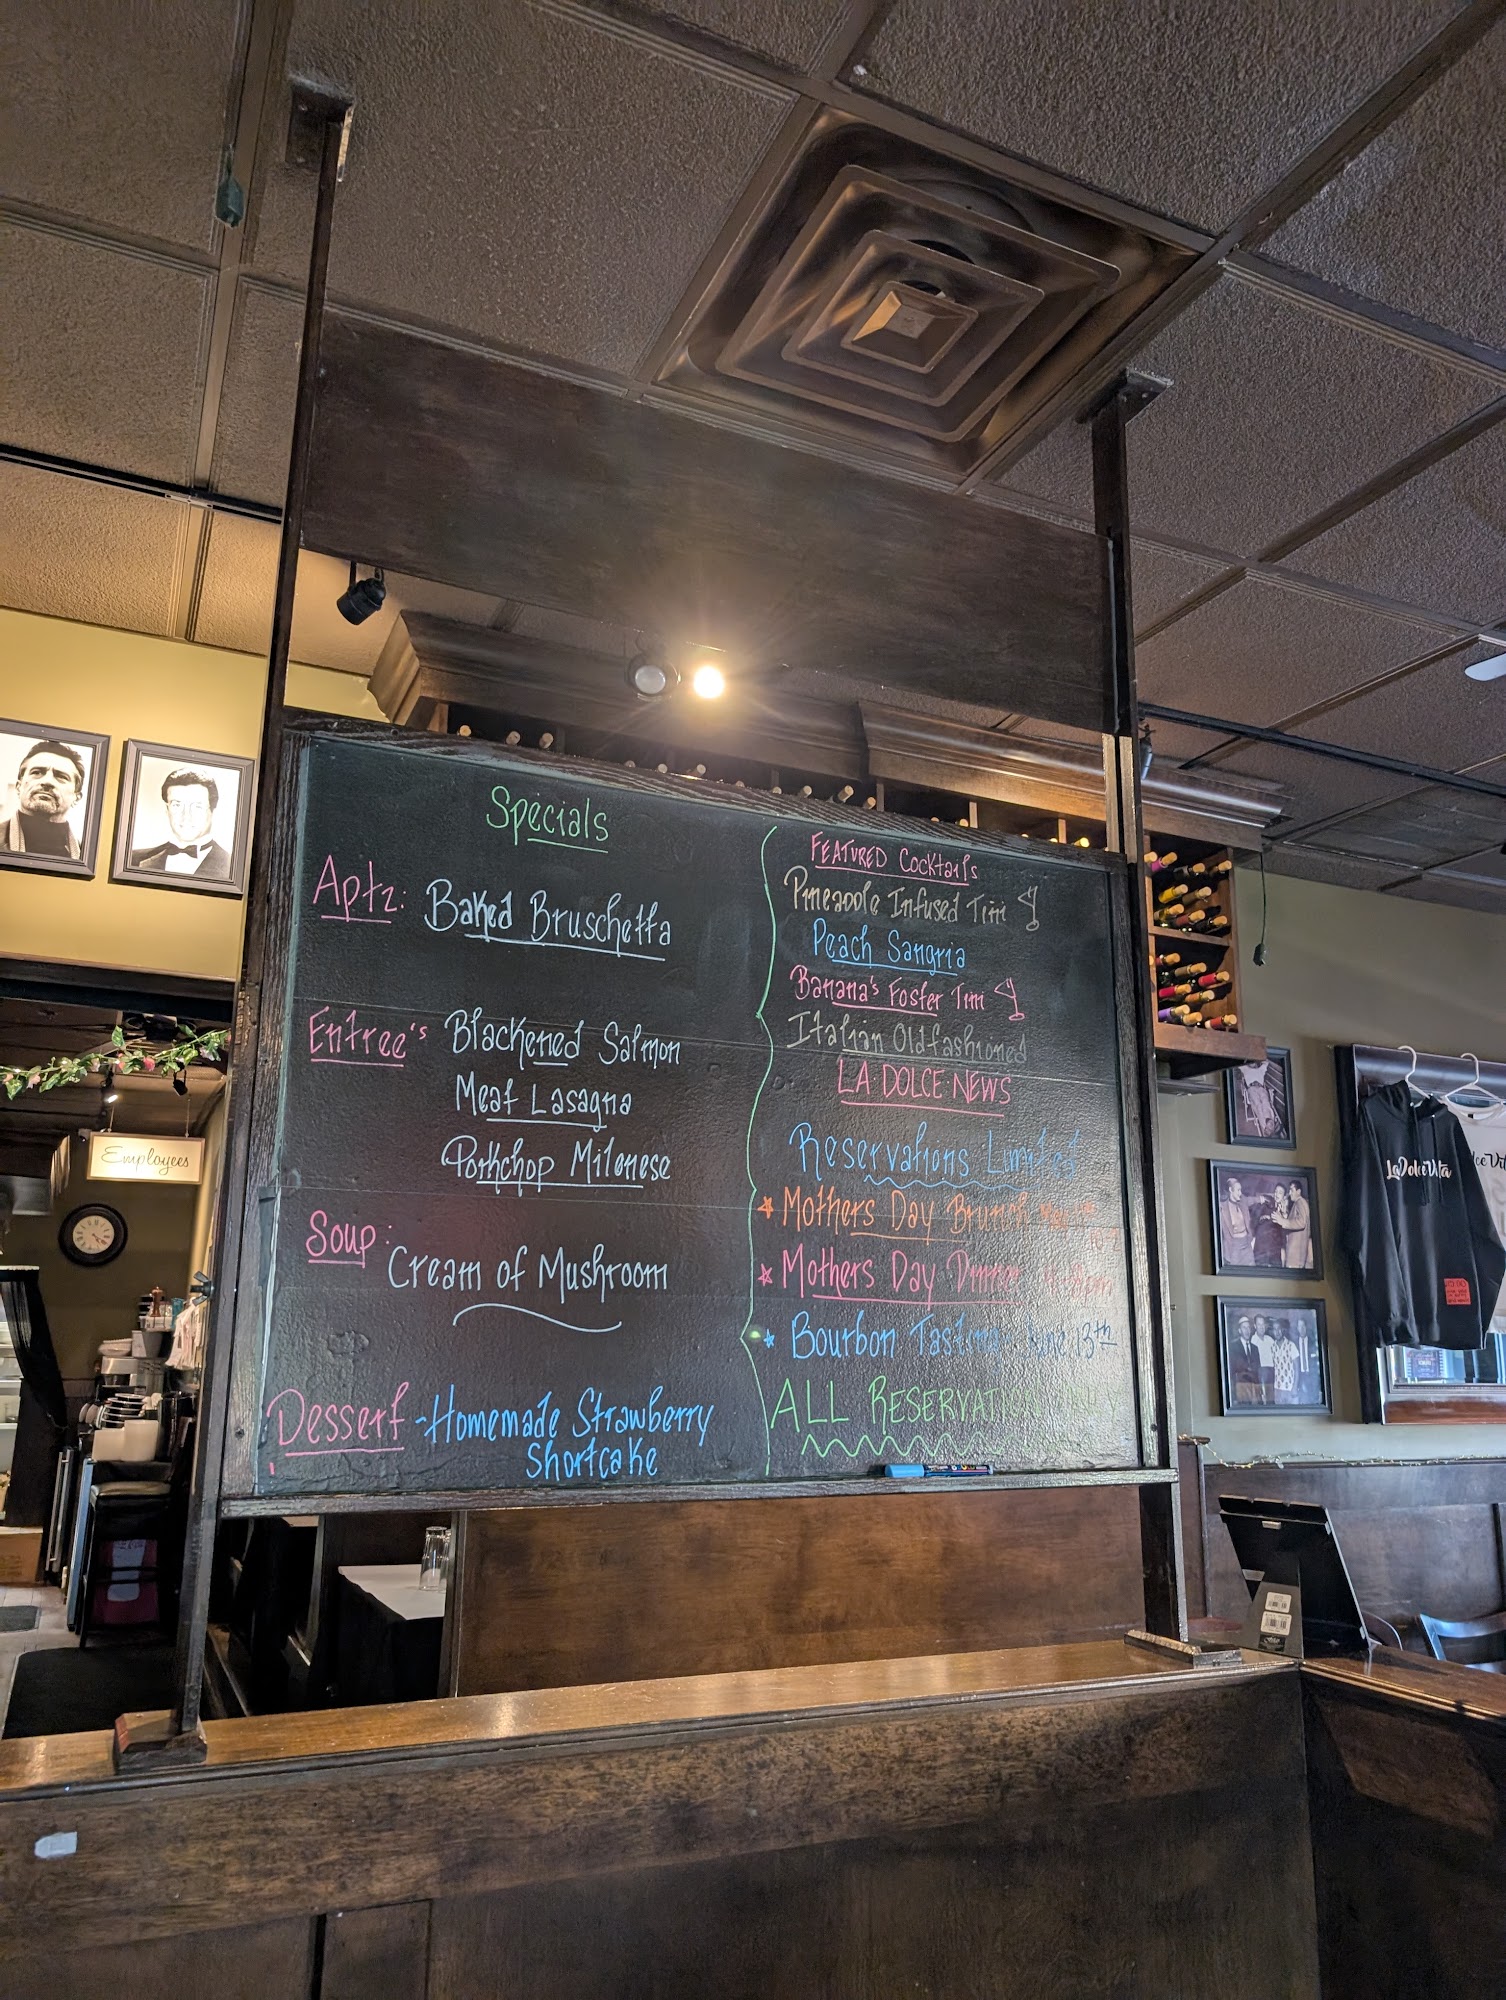 Specials
Aptz: Baked Bruschetta
Entree's Blackened Salmon
Meat Lasagna
Porkchop Milenese
Soup: Cream of Mushroom
Dessert - Homemade Strawberry
Shortcake
FEATURED Cocktails
Pineapple Infused Tini
Peach Sangria
Banana's Foster Tini
Italian Oldfashioned
LA·DOLCE·NEWS
Reservations Limited
Mothers Day Brunch
Mothers Day Dinner
Bourbon Tasting June 13th
ALL RESERVATION
Employees
LaDolceVita